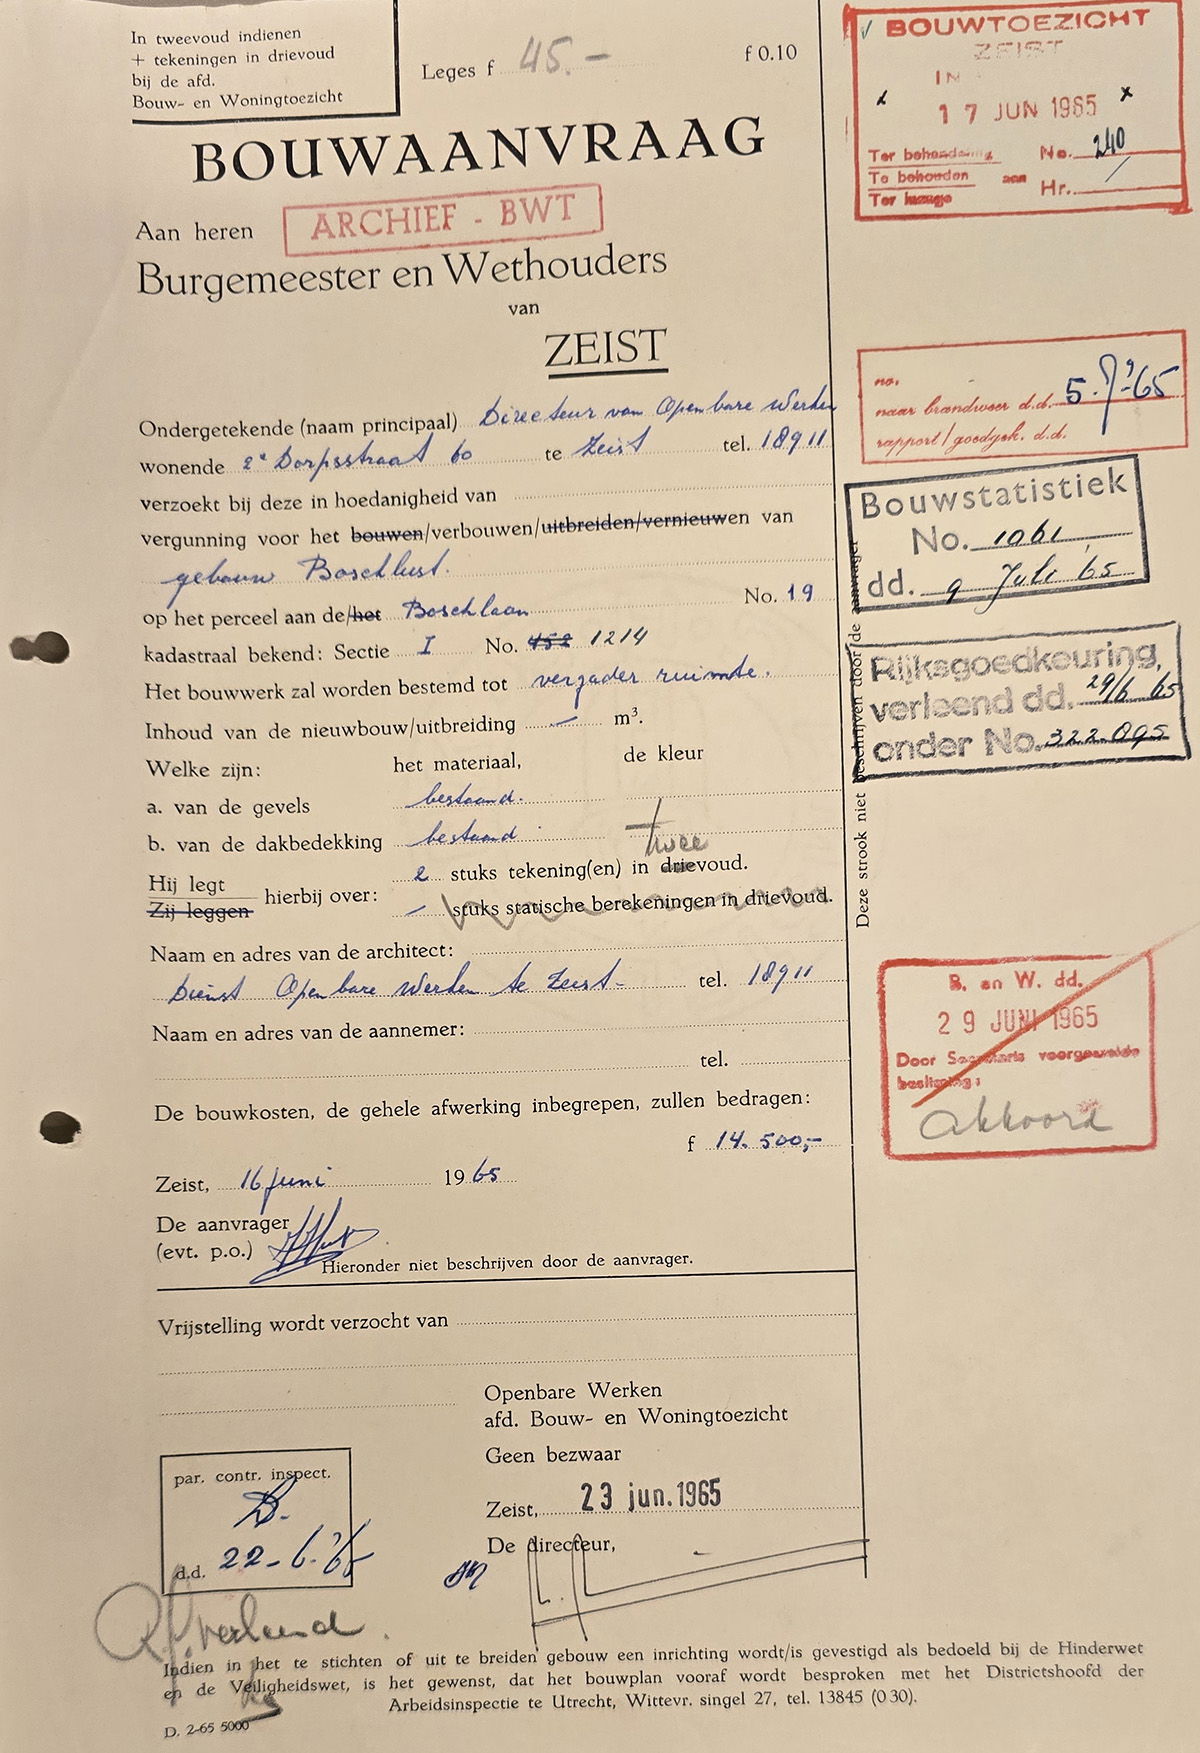 In tweevoud indienen
+ tekeningen in drievoud
bij de afd.
Bouw- en Woningtoezicht
Leges f 45.-
f 0.10
BOUWAANVRAAG
Aan heren
ARCHIEF - BWT
Burgemeester en Wethouders
van
ZEIST
Ondergetekende (naam principaal) Directeur van Openbare Werken
wonende 2e Dorpsstraat 60 te Zeist tel. 18911
verzoekt bij deze in hoedanigheid van
vergunning voor het bouwen/verbouwen/uitbreiden/vernieuwen van
gebouw Boschlust.
op het perceel aan de/het Boschlaan No. 19
kadastraal bekend: Sectie I No. 452 1214
Het bouwwerk zal worden bestemd tot vergader ruimte.
Inhoud van de nieuwbouw/uitbreiding — m³.
Welke zijn: het materiaal, de kleur
a. van de gevels bestaand.
b. van de dakbedekking bestaand
twee
Hij legt
Zij leggen
hierbij over:
2 stuks tekening(en) in drievoud.
— stuks statische berekeningen in drievoud.
Naam en adres van de architect:
Dienst Openbare Werken te Zeist- tel. 18911
Naam en adres van de aannemer:
tel.
De bouwkosten, de gehele afwerking inbegrepen, zullen bedragen:
f 14.500,-
Zeist, 16 juni 1965
De aanvrager
(evt. p.o.)
Hieronder niet beschrijven door de aanvrager.
Vrijstelling wordt verzocht van
Openbare Werken
afd. Bouw- en Woningtoezicht
Geen bezwaar
Zeist, 23 jun. 1965
De directeur,
par. contr. inspect.
d.d. 22-6-'65
verleend.
Indien in het te stichten of uit te breiden gebouw een inrichting wordt/is gevestigd als bedoeld bij de Hinderwet
en de Veiligheidswet, is het gewenst, dat het bouwplan vooraf wordt besproken met het Districtshoofd der
Arbeidsinspectie te Utrecht, Wittevr. singel 27, tel. 13845 (030).
D. 2-65 5000
BOUWTOEZICHT
ZEIST
IN
17 JUN 1965
Ter behandeling
Te behouden aan
Ter inzage
No. 240
Hr.
no.
naar brandweer d.d. 5-7-'65
rapport/goedgek. d.d.
Bouwstatistiek
No. 1061
dd. 9 Juli '65
Rijksgoedkeuring,
verleend dd. 29/6 65
onder No. 322.095
Deze strook niet beschrijven door de aanvrager
B. en W. dd.
29 JUNI 1965
Door Secretaris voorgestelde
beslissing:
akkoord